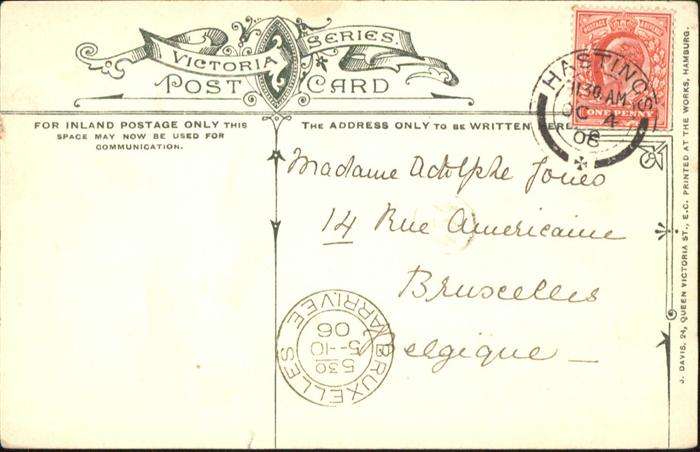 VICTORIA SERIES.
POST CARD
FOR INLAND POSTAGE ONLY THIS
SPACE MAY NOW BE USED FOR
COMMUNICATION.
THE ADDRESS ONLY TO BE WRITTEN HERE
POSTAGE REVENUE
ONE PENNY
HASTINGS
1130 AM
OC 4
06
Madame Adolphe Jones
14 Rue Americaine
Bruxelles
Belgique
BRUXELLES ARRIVEE
530
5-10
06
J. DAVIS, 24, QUEEN VICTORIA ST., E.C. PRINTED AT THE WORKS, HAMBURG.